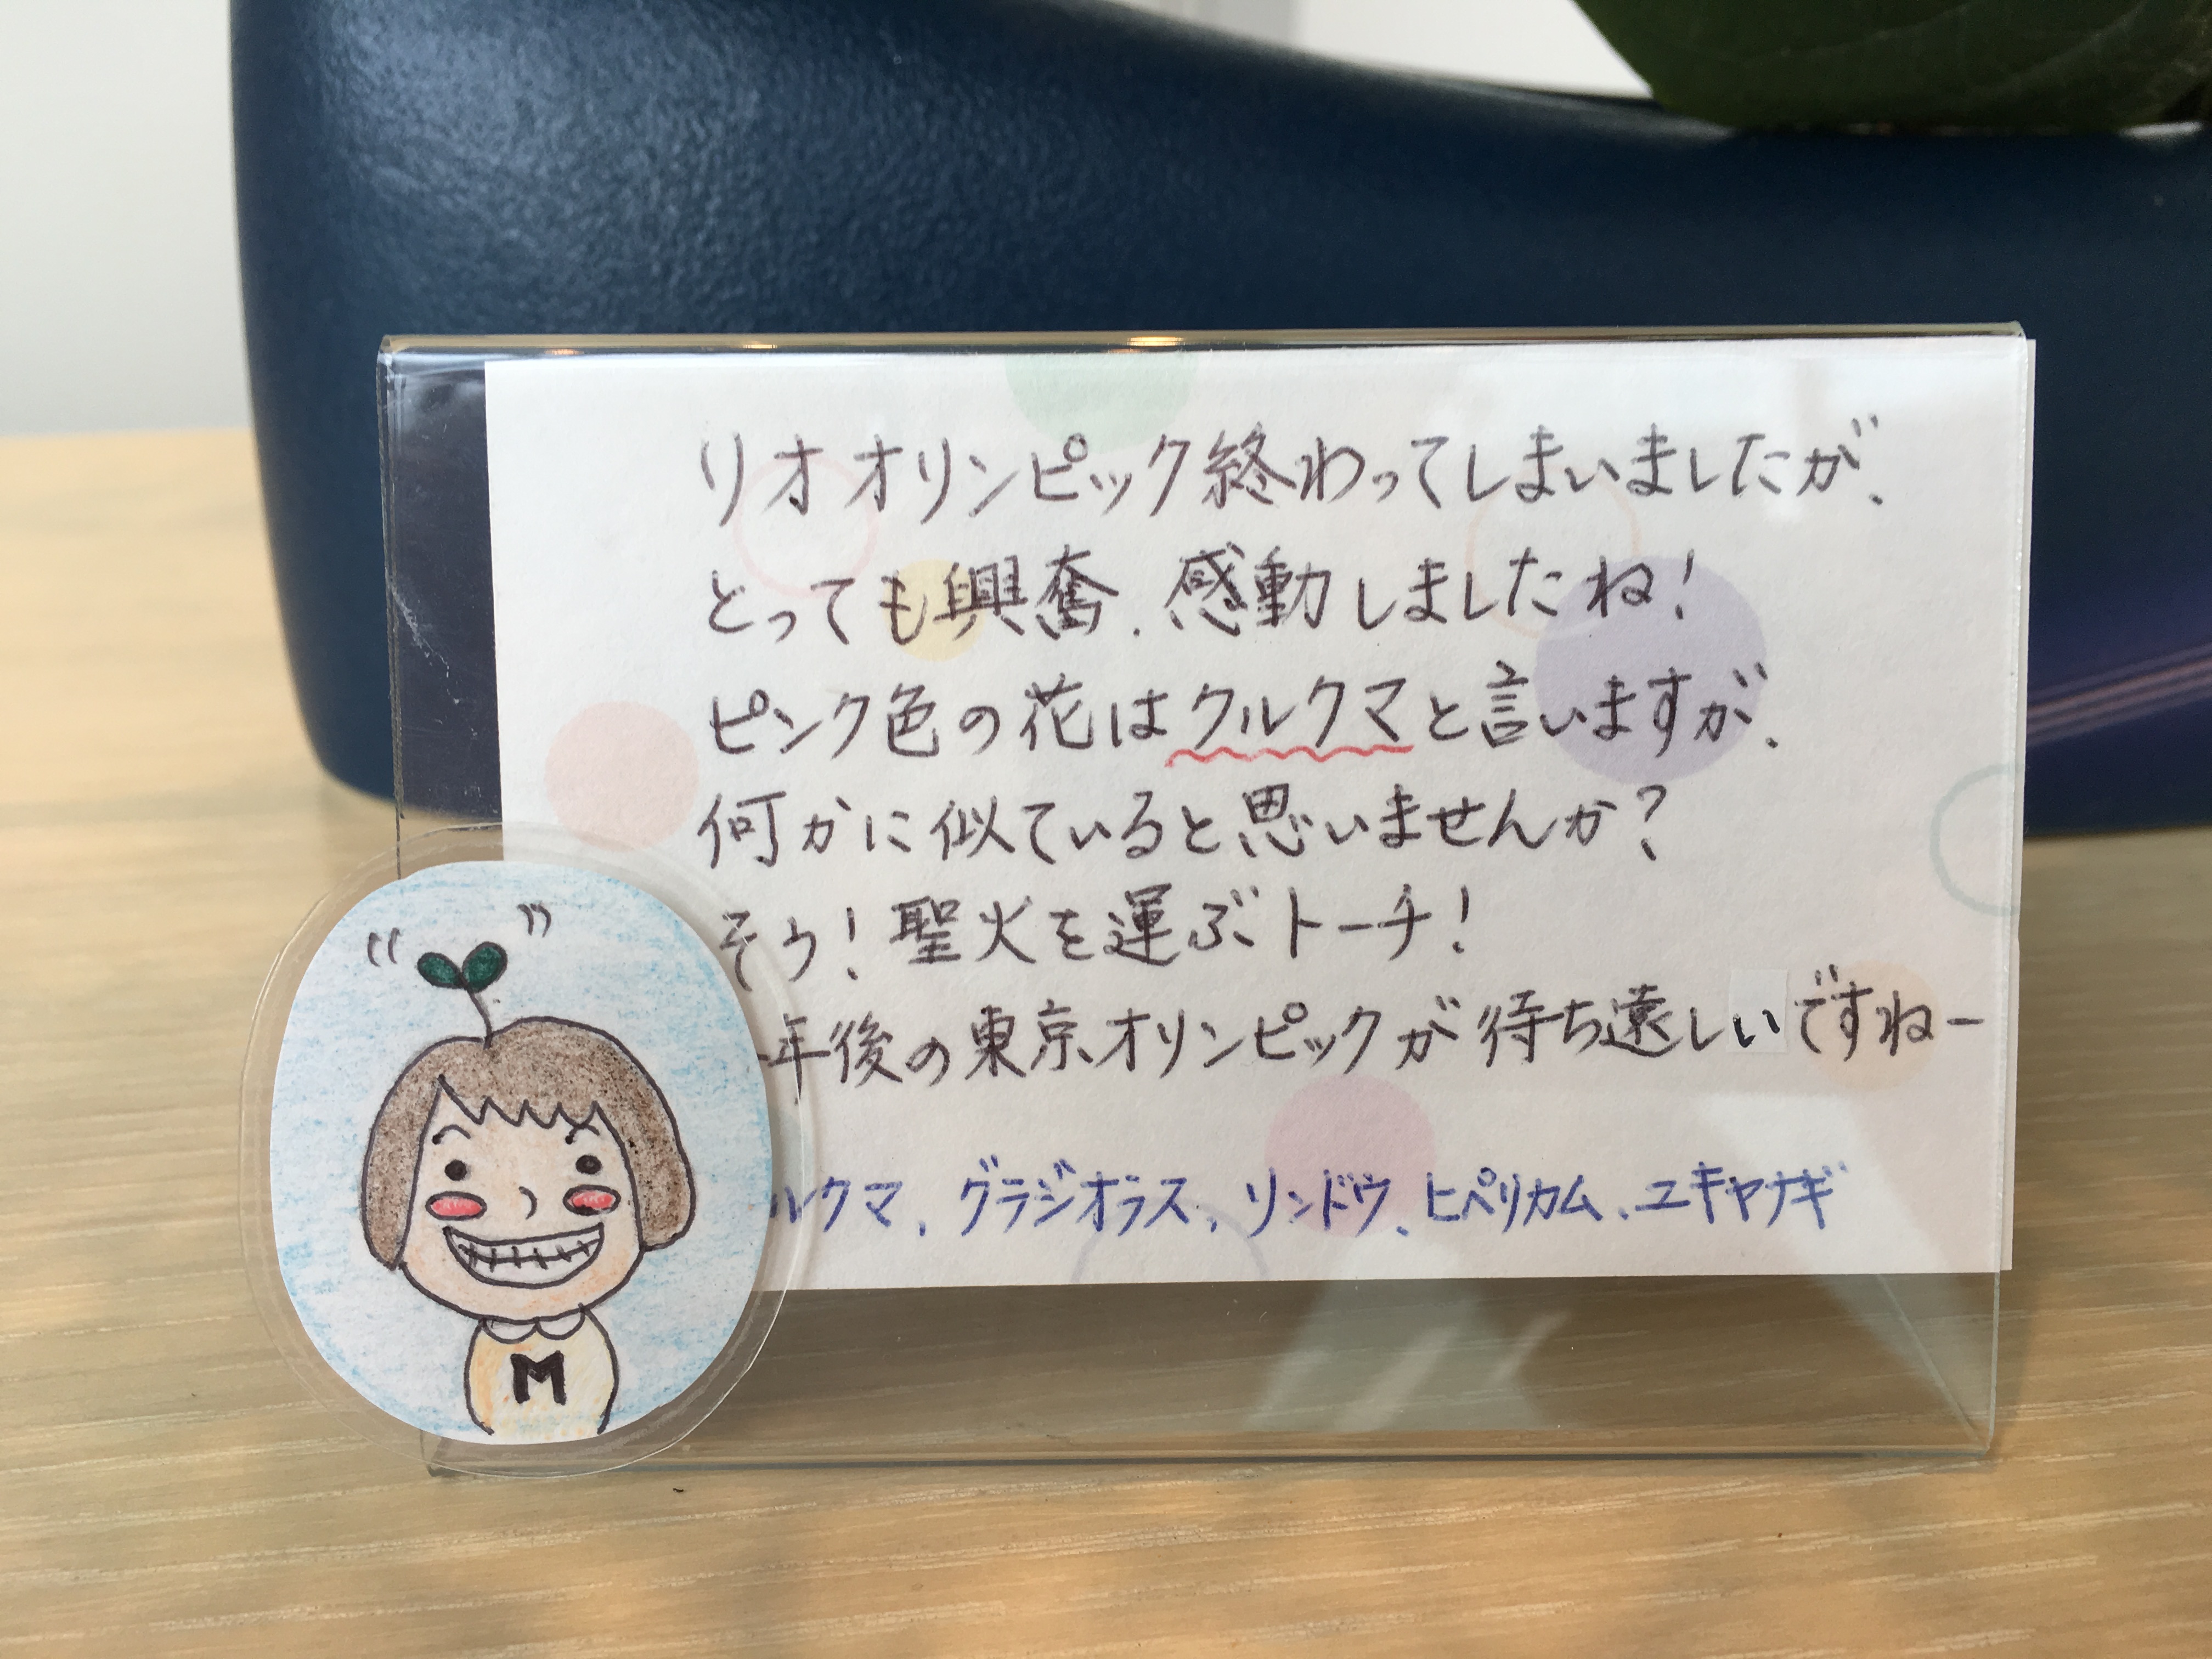 リオオリンピック終わってしまいましたが、
とっても興奮、感動しましたね!
ピンク色の花はクルクマと言いますが、
何かに似ていると思いませんか?
そう!聖火を運ぶトーチ!
年後の東京オリンピックが待ち遠しいですねー
ルクマ、グラジオラス、リンドウ、ヒペリカム、ユキヤナギ
M